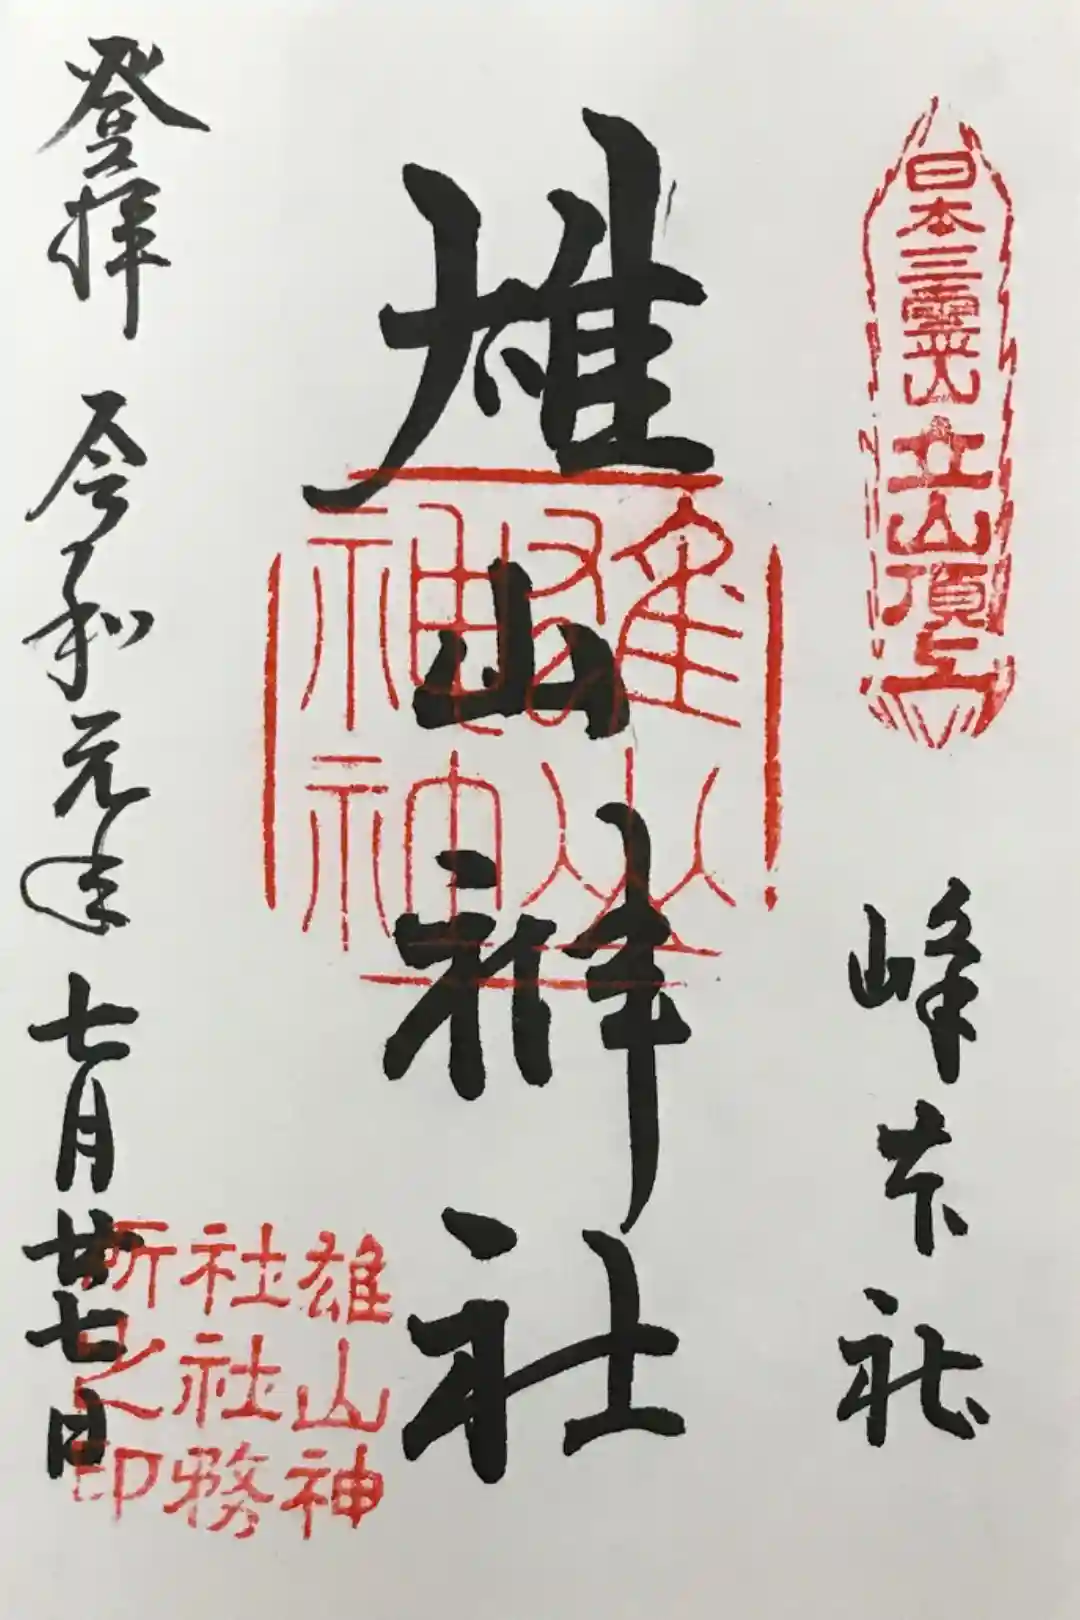 日本三霊山立山頂上
峰本社
雄山神社
雄山
神神
登拝 令和元年七月廿七日
雄山神
社社務
所之印